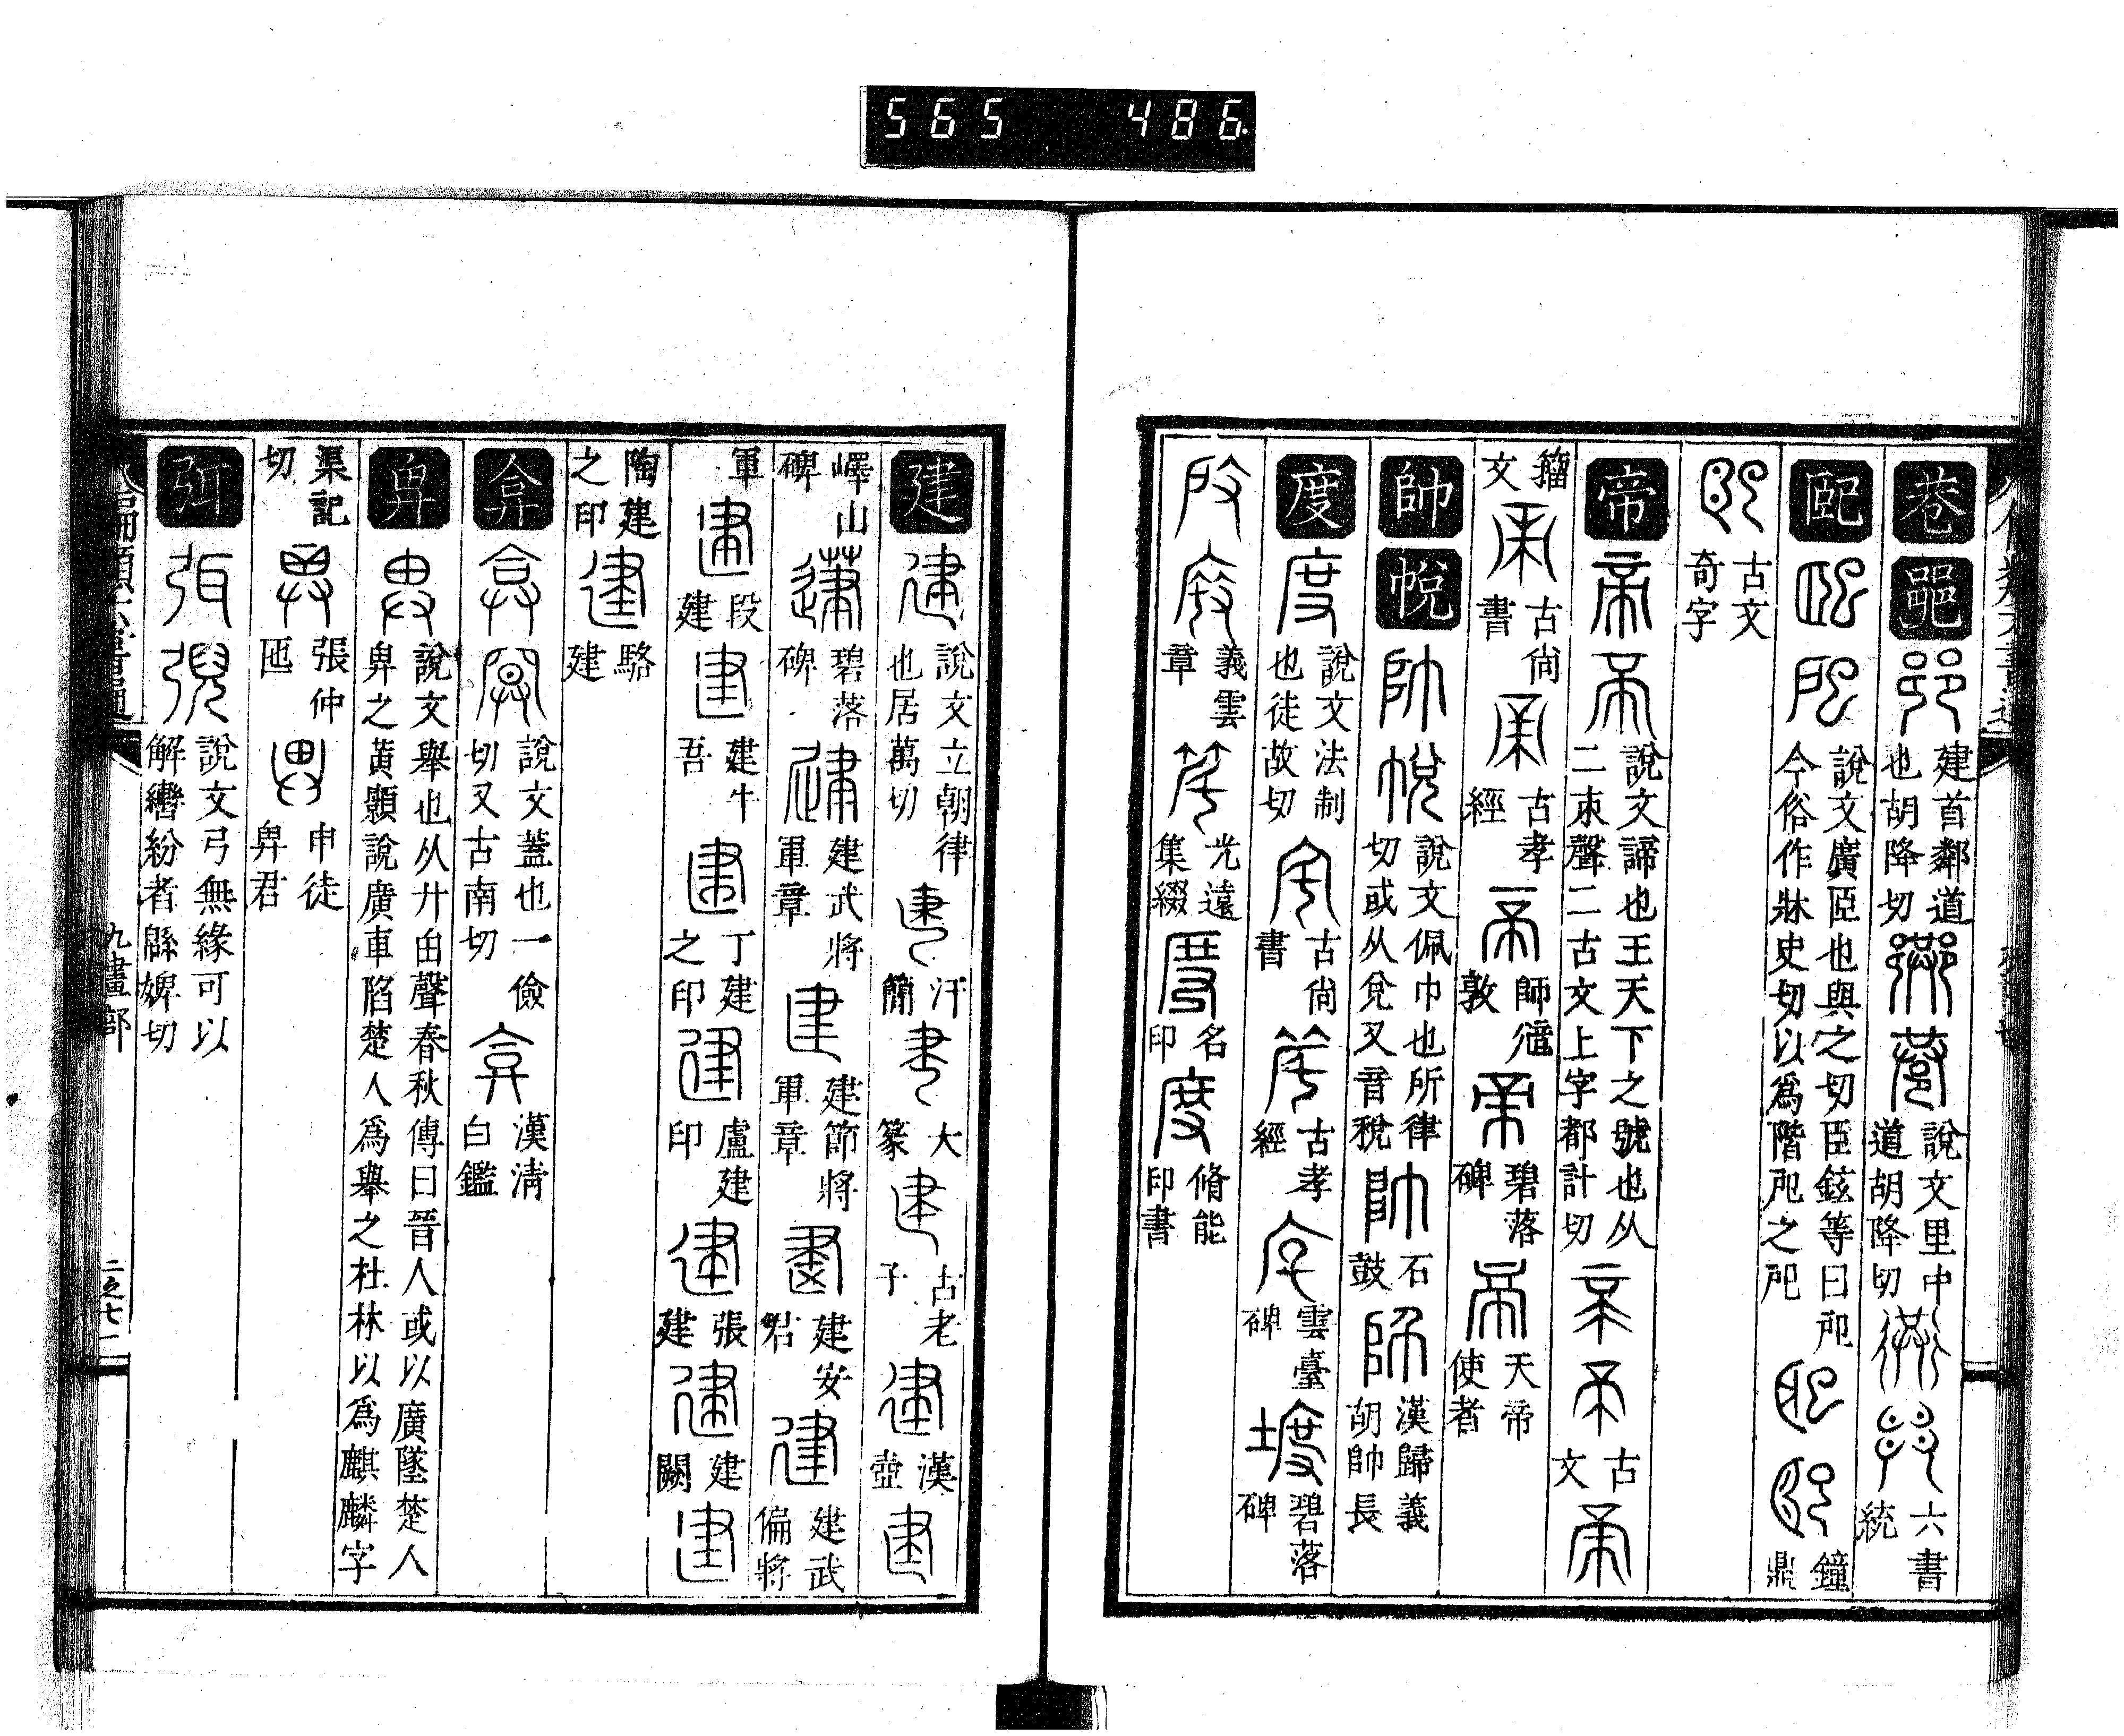 565 486
巷 𨞠 建首鄰道也胡降切 說文里中道胡降切 六書統
巸 說文廣𦣞也與之切臣鉉等曰戺今俗作牀史切以爲階戺之戺 鐘鼎
古文奇字
帝 說文諦也王天下之號也从二朿聲二古文上字都計切 古文
籀文 古尙書 古孝經 師𩛥敦 碧落碑 天帝使者
帥 帨 說文佩巾也所律切或从兌又音稅 石鼓 漢歸義胡帥長
度 說文法制也徒故切 古尙書 古孝經 雲臺碑 碧落碑
義雲章 光遠集綴 名印 脩能印書
建 說文立朝律也居萬切 汗簡 大篆 古老子 漢壺
嶧山碑 碧落碑 建武將軍章 建節將軍章 建安 建武偏將
軍 段建 建牛吾 丁建之印 盧建印 張建 建闕
陶建之印 駱建
弇 說文蓋也一儉切又古南切 漢淸白鑑
𢌿 說文舉也从廾甶聲春秋傳曰晉人或以廣墜楚人𢌿之黃顥說廣車陷楚人爲舉之杜林以爲麒麟字
渠記切 張仲匜 申徒𢌿君
弭 說文弓無緣可以解轡紛者緜婢切
六書通 九畫部 二之七二